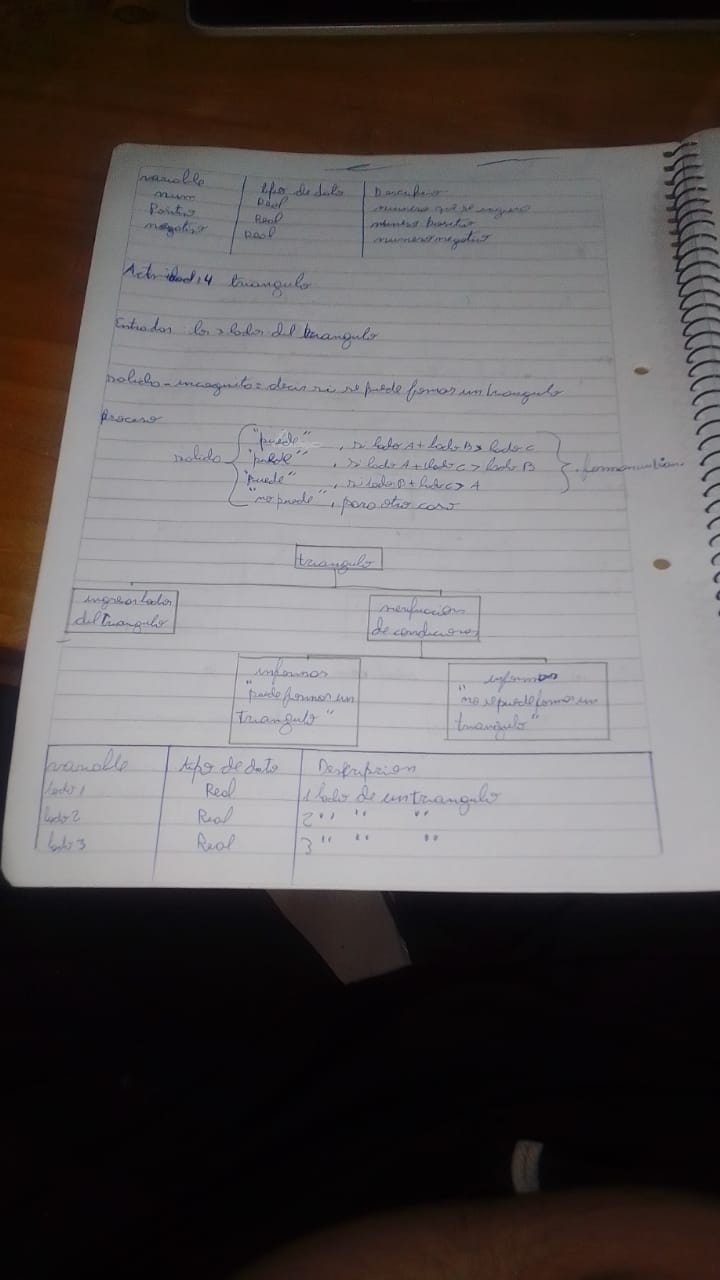 variable tipo de dato Descripcion
num Real numero que se ingresa
Positivo Real numero positivo
negativo Real numero negativo
Actividad 14 triangulo
Entradas los 3 lados del triangulo
salida - incognita = decir si se puede formar un triangulo
Proceso
"puede" , si lado A + lado B > lado C
salida "puede" , si lado A + lado C > lado B
"puede" , si lado B + lado C > A
"no puede" , para otro caso
triangulo
ingresar lados
del triangulo
verificacion
de condiciones
informar
"puede formar un
triangulo"
informar
"no se puede formar un
triangulo"
variable tipo de dato Descripcion
lado 1 Real 1 lado de un triangulo
lado 2 Real 2 " " "
lado 3 Real 3 " " "